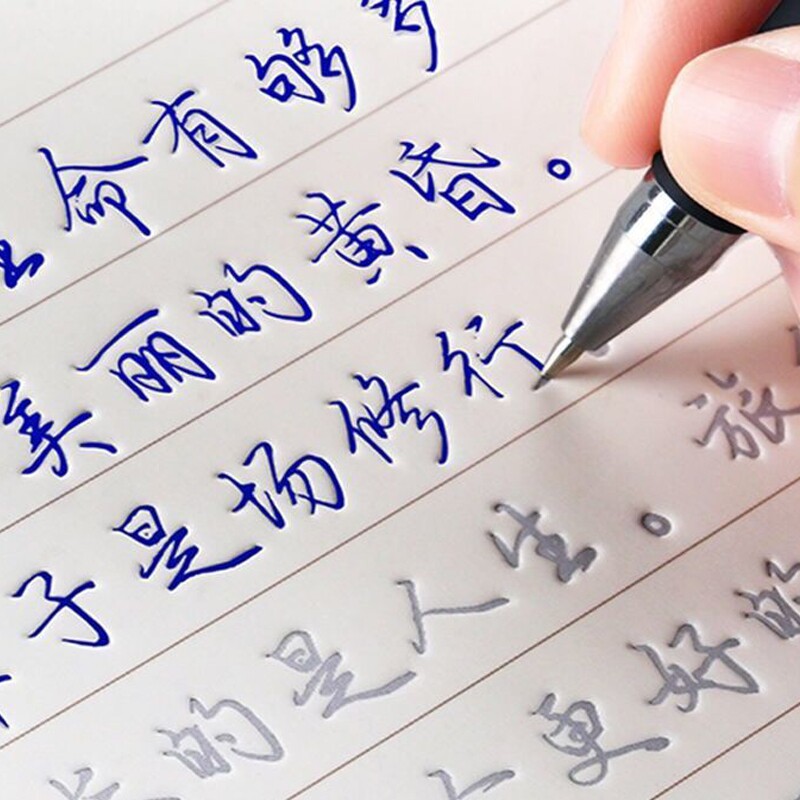 命有够
美丽的黄昏。
子是场修行
的是人生。旅
更好的